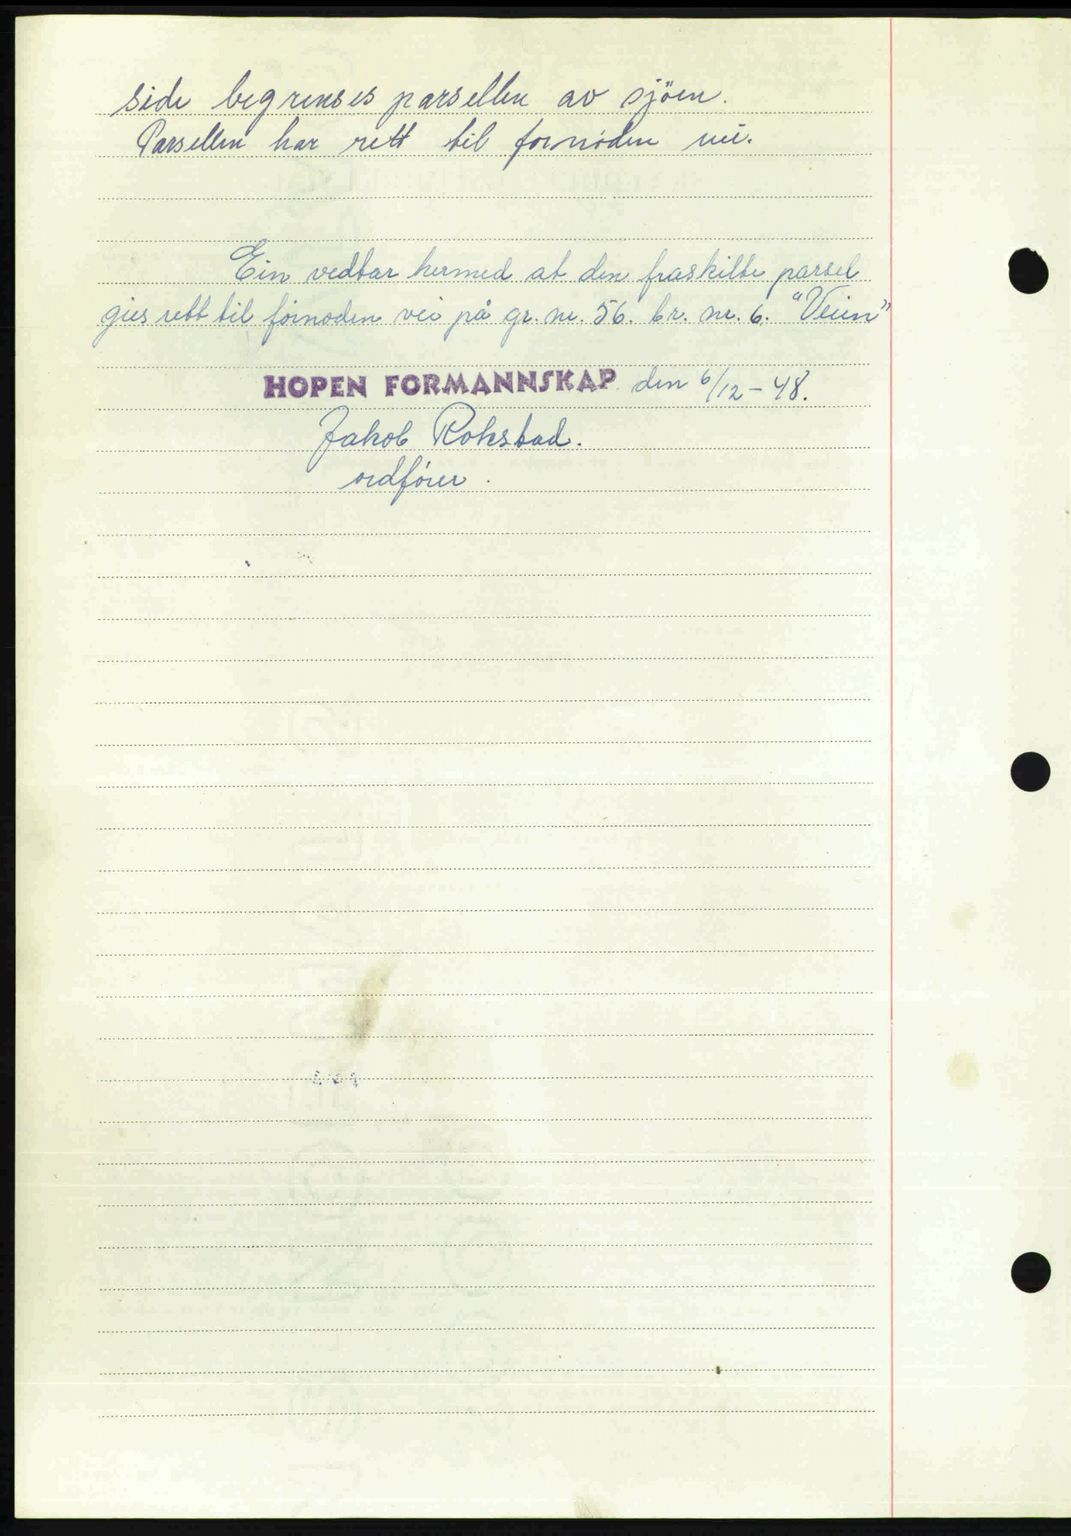 side begrenses parsellen av sjöen.
Parsellen har rett til fornöden vei.
Ein vedtar hermed at den fraskilte parsel
gies rett til förnöden vei på gr. nr. 56. br. nr. 6. "Veien"
HOPEN FORMANNSKAP den 6/12 - 48.
Jakob Rokstad.
ordförer.